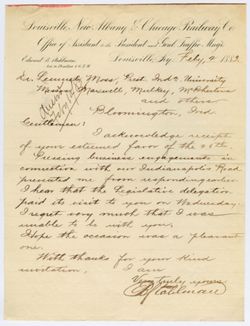 Louisville, New Albany & Chicago Railway Co.
Office of Assistant to the President and Genl. Traffic Mangr.
Louisville, Ky. Feby. 9 1883
Dr. Lemuel Moss, Prest. Ind. University
Messrs Maxwell, Mulky, McPheters
and others
Bloomington, Ind.
Gentlemen:
I acknowledge receipt
of your esteemed favor of the
Pressing business engagements in
connection with our Indianapolis Road
prevented me from responding sooner.
I hear that the Legislative delegation
paid its visit to you on Wednesday.
I regret very much that I was
unable to be with you.
I hope the occasion was a pleasant
one.
With thanks for your kind
invitation,
I am
Very truly yours